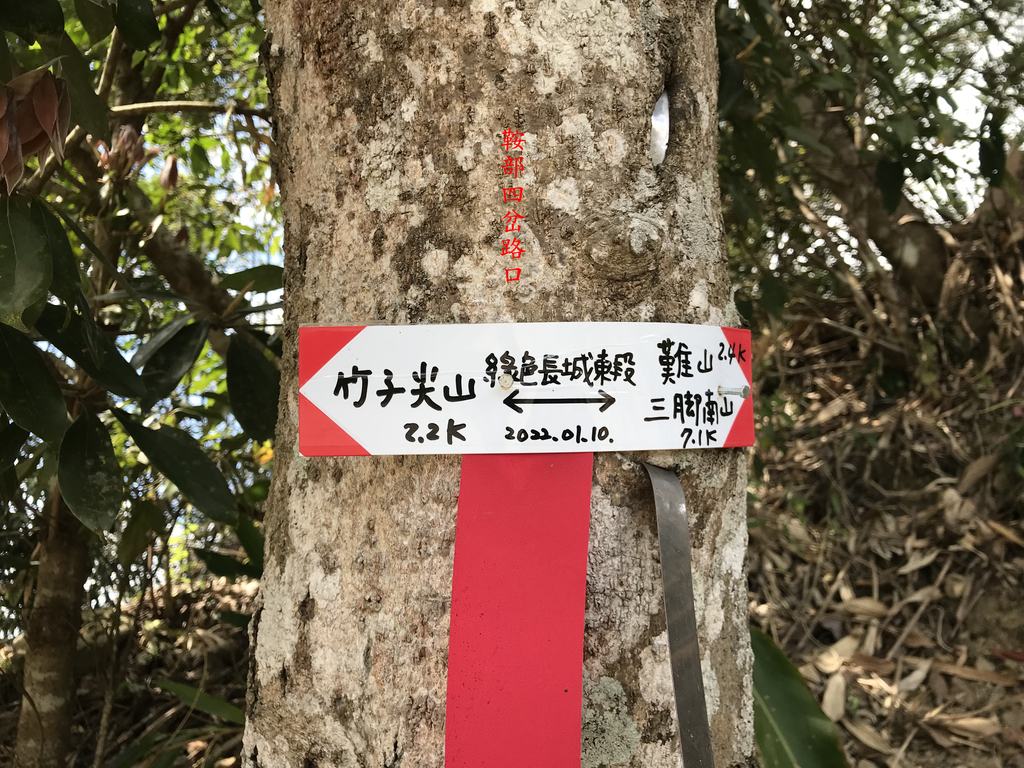 鞍部四岔路口
竹子尖山
2.2K
綠色長城東段
2022.01.10.
難山 2.4K
三脚南山
7.1K